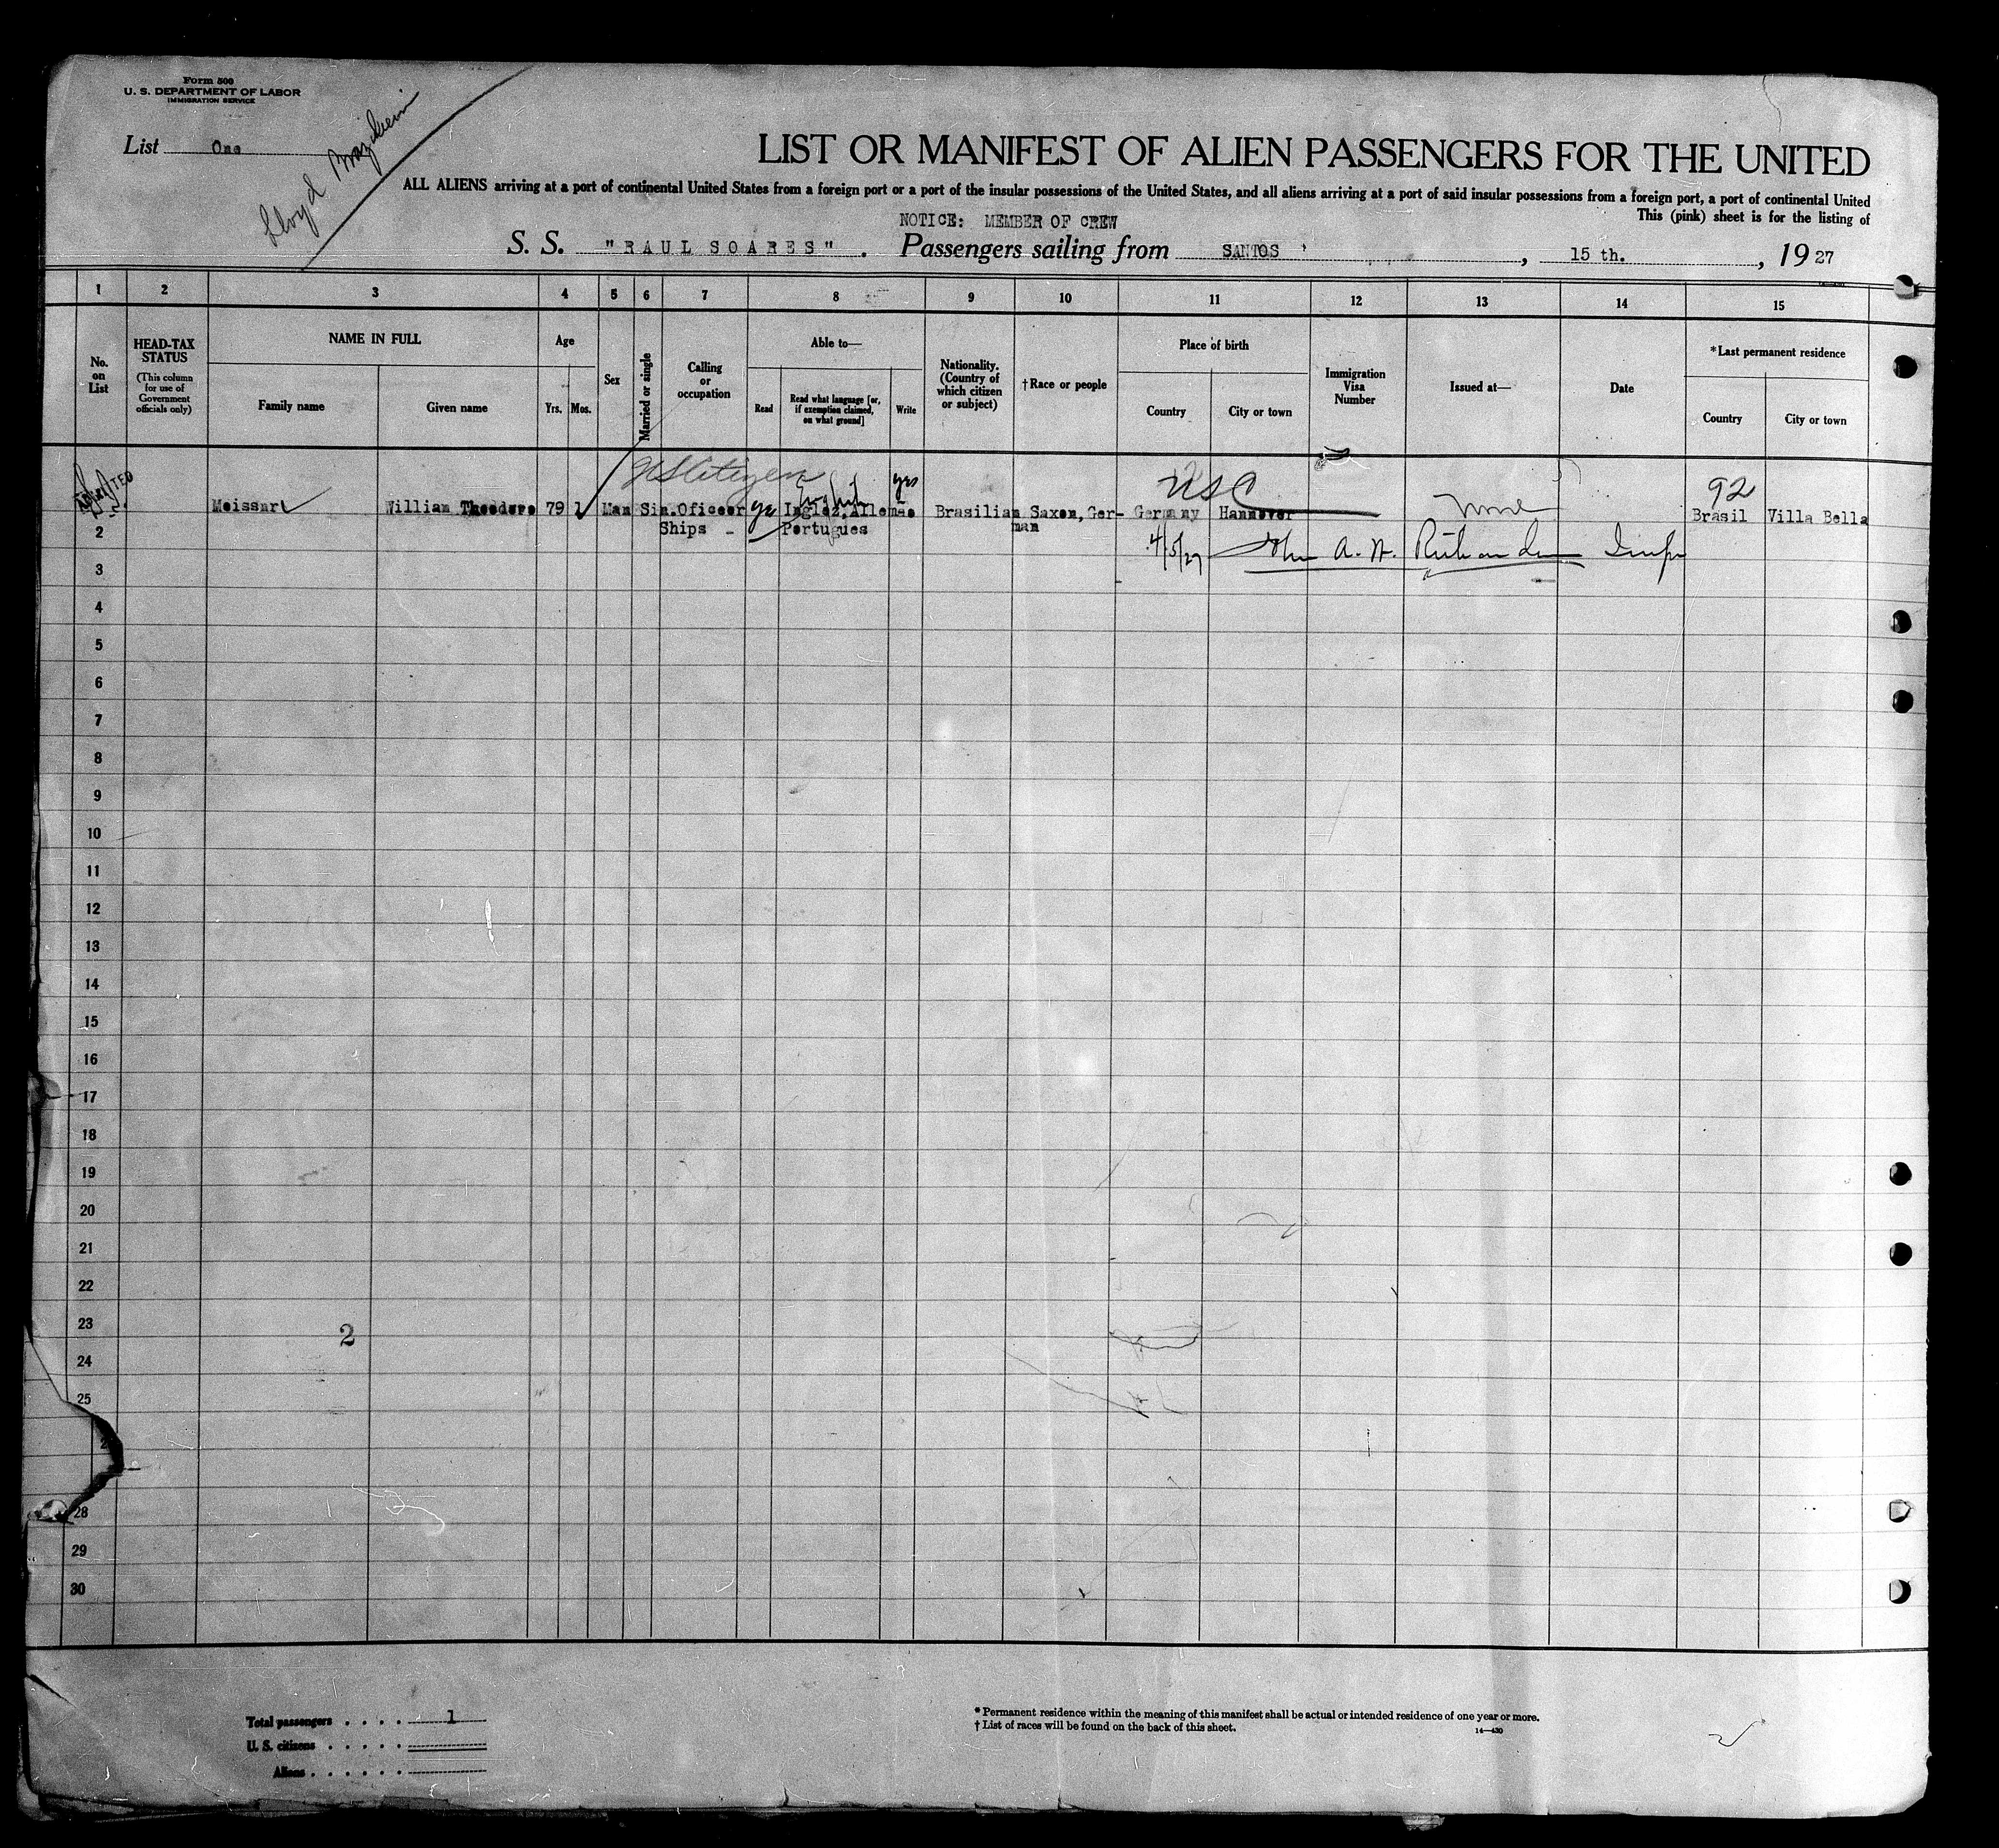 Form 500
U. S. DEPARTMENT OF LABOR
IMMIGRATION SERVICE
List One
Lloyd Brazileiro
LIST OR MANIFEST OF ALIEN PASSENGERS FOR THE UNITED
ALL ALIENS arriving at a port of continental United States from a foreign port or a port of the insular possessions of the United States, and all aliens arriving at a port of said insular possessions from a foreign port, a port of continental United
This (pink) sheet is for the listing of
NOTICE: MEMBER OF CREW
S. S. "RAUL SOARES". Passengers sailing from SANTOS, 15 th., 1927
1 2 3 4 5 6 7 8 9 10 11 12 13 14 15
No. on List
HEAD-TAX STATUS
(This column for use of Government officials only)
NAME IN FULL
Family name
Given name
Age
Yrs. Mos.
Sex
Married or single
Calling or occupation
Able to—
Read
Read what language [or, if exemption claimed, on what ground]
Write
Nationality. (Country of which citizen or subject)
†Race or people
Place of birth
Country
City or town
Immigration Visa Number
Issued at—
Date
*Last permanent residence
Country
City or town
ADMITTED
US Citizen English yes USC 92
Meissnrt William Theodore 79 1 Man Sin. Oficeer ye Inglez, Allemão Brasilian Saxon, Ger- Germany Hannover none Brasil Villa Bella
2 Ships - Portugues man
4/5/27 John A. H. Insp
3
4
5
6
7
8
9
10
11
12
13
14
15
16
17
18
19
20
21
22
23
2
24
25
2
28
29
30
Total passengers . . . . 1
U. S. citizens . . . . .
Aliens . . . . . .
* Permanent residence within the meaning of this manifest shall be actual or intended residence of one year or more.
† List of races will be found on the back of this sheet.
14—430